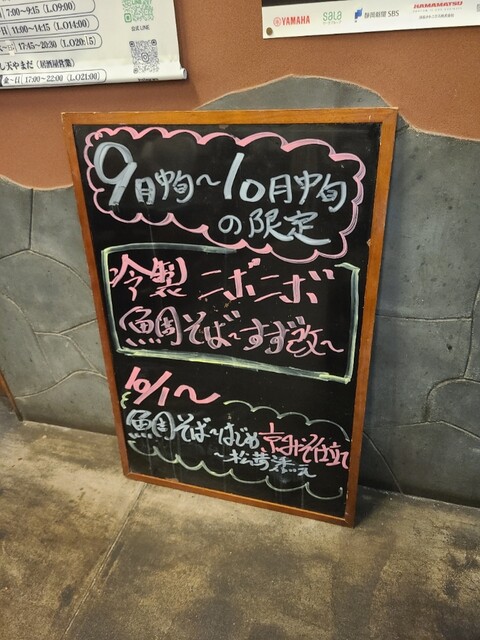 7:00〜9:15 (LO9:00)
11:00〜14:15 (LO14:00)
17:45〜20:30 (L.O20:15)
し天やまだ (居酒屋営業)
金〜日 17:00〜22:00 (L.O21:00)
公式 LINE
YAMAHA
sala
静岡新聞 SBS
HAMAMATSU
9月中旬〜10月中旬
の限定
冷製 ニボニボ
鯛そば〜すず改〜
10/1〜
鯛そば〜はじめ 京みそ仕立
〜松茸添え